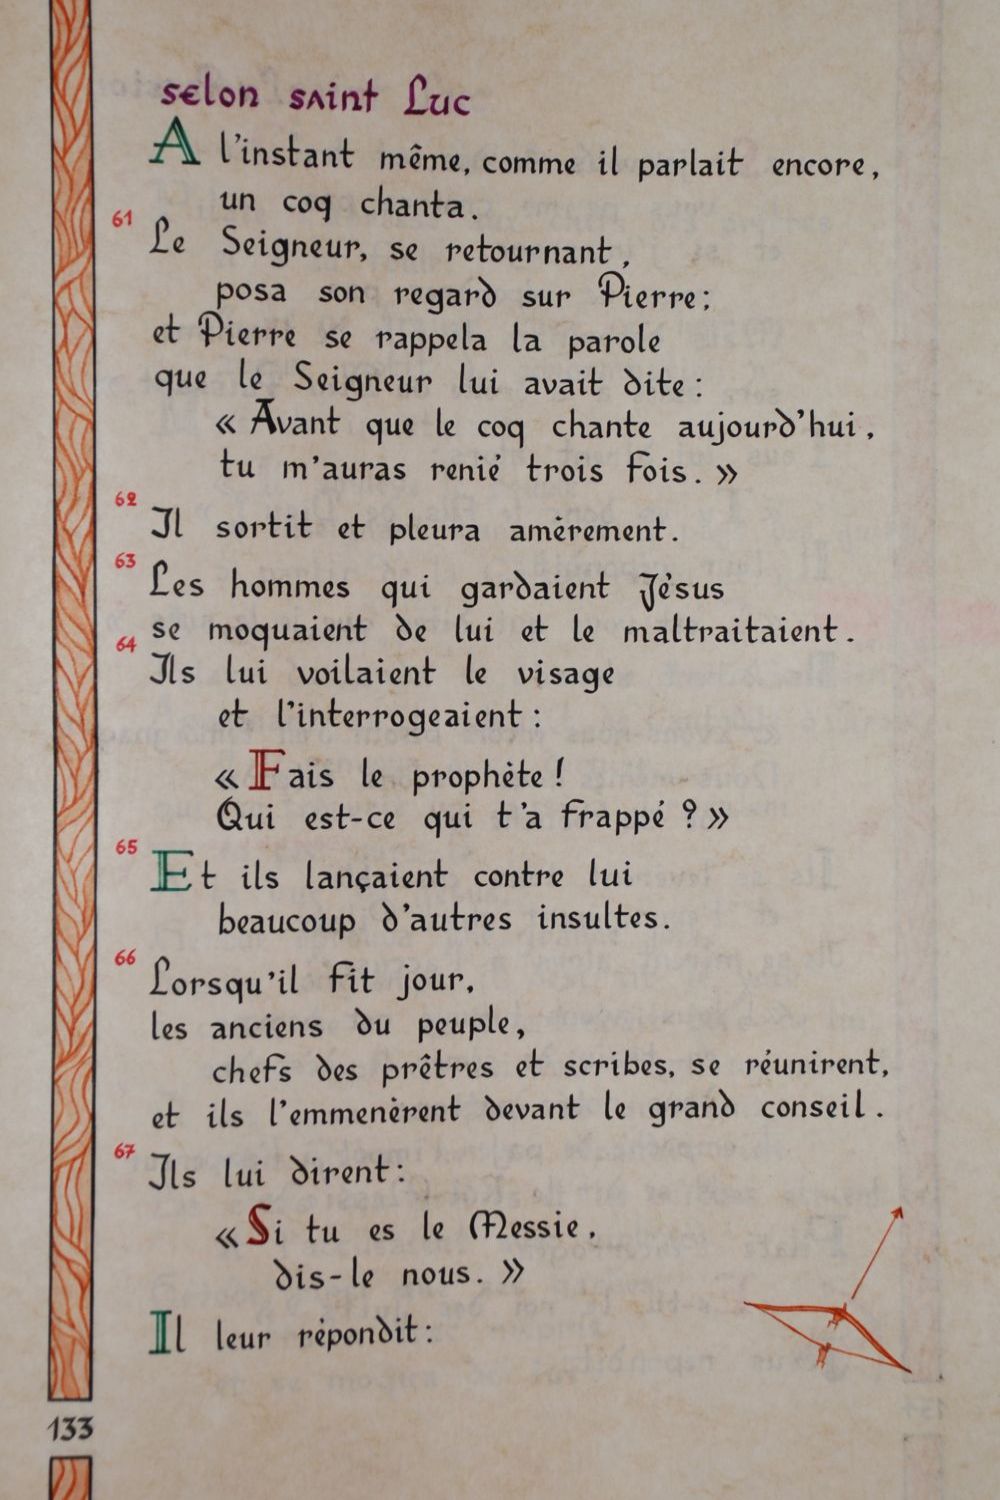 selon saint Luc
A l'instant même, comme il parlait encore,
un coq chanta.
61
Le Seigneur, se retournant,
posa son regard sur Pierre;
et Pierre se rappela la parole
que le Seigneur lui avait dite:
« Avant que le coq chante aujourd'hui,
tu m'auras renié trois fois. »
62
Il sortit et pleura amèrement.
63
Les hommes qui gardaient Jésus
se moquaient de lui et le maltraitaient.
64
Ils lui voilaient le visage
et l'interrogeaient:
« Fais le prophète!
Qui est-ce qui t'a frappé ? »
65
Et ils lançaient contre lui
beaucoup d'autres insultes.
66
Lorsqu'il fit jour,
les anciens du peuple,
chefs des prêtres et scribes, se réunirent,
et ils l'emmenèrent devant le grand conseil.
67
Ils lui dirent:
« Si tu es le Messie,
dis-le nous. »
Il leur répondit:
133